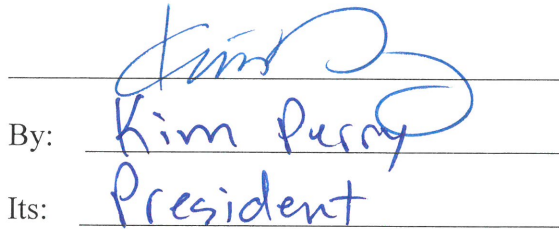 Kim P
By: Kim Perry
Its: President